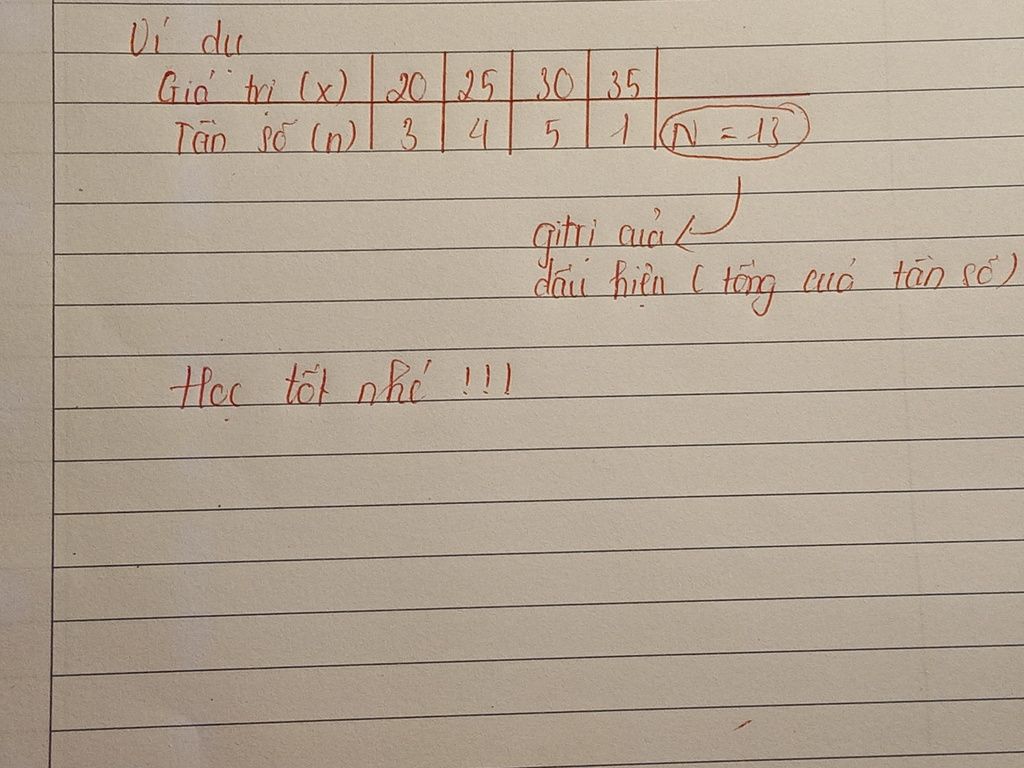 Ví dụ
Giá trị (x) 20 25 30 35
Tần số (n) 3 4 5 1 N = 13
gitrị của
dấu hiệu (tổng của tần số)
Học tốt nhé !!!